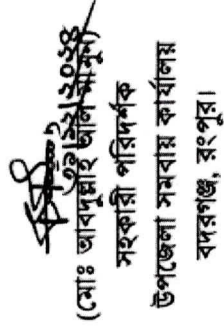 ৩১।১২।২০২৪
(মোঃ আবদুল্লাহ আল মামুন)
সহকারী পরিদর্শক
উপজেলা সমবায় কার্যালয়
বদরগঞ্জ, রংপুর।